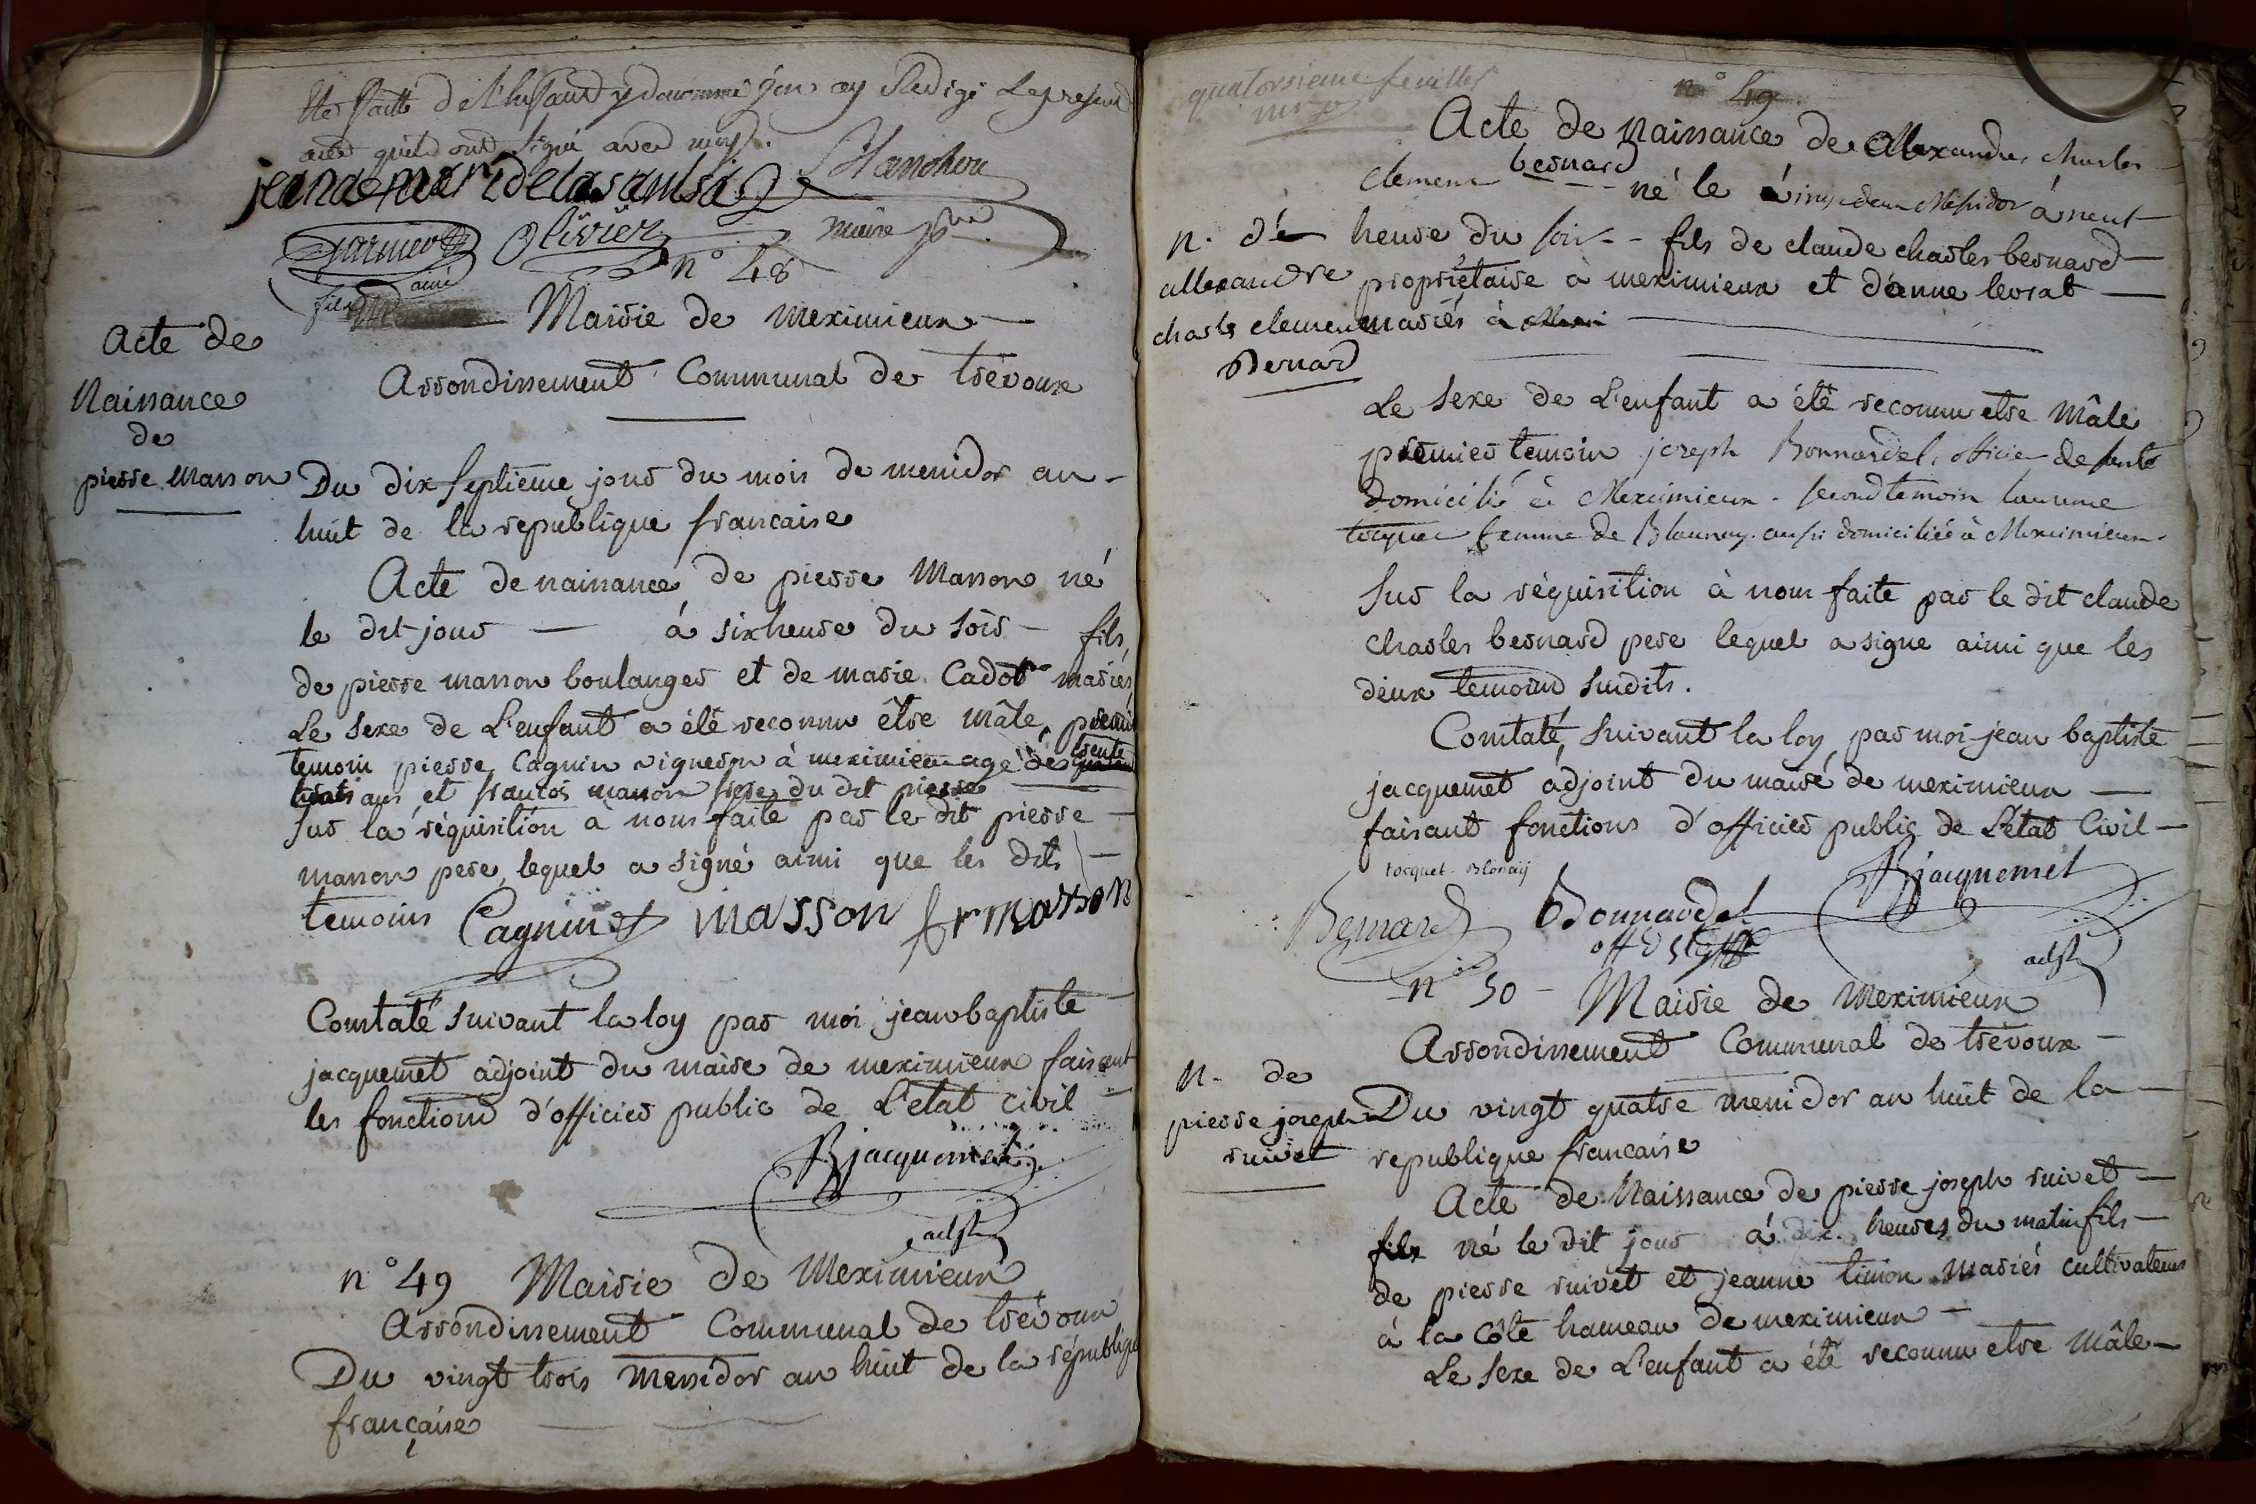 acte quils ont signé avec moy.
jeanaémaridelasaulsi
Garnier Olivier maire
fils ainé
n° 48
Mairie de meximieux
Acte de
Naissance
de
pierre Masson
Arrondissement Communal de trévoux
Du dix septieme jour du mois de messidor an
huit de la republique francaise
Acte de naissance de pierre Masson né
le dit jour à six heure du soir fils
de pierre masson boulanger et de marie Cadot mariés
Le sexe de L'enfant a été reconnu être mâle, premier
temoin pierre Cagnin vigneron à meximieux agé de trente
trois ans et francois masson frere du dit pierre
sur la réquisition a nous faite par le dit pierre
masson pere, lequel a signé ainsi que les dits
temoins Cagnin masson fr masson
Constaté suivant la loy par moi jean baptiste
jacquemet adjoint du maire de meximieux faisant
les fonctions d'officier public de L'etat civil
Bjacquemet
adjt
n° 49 Mairie de Meximieux
Arrondissement Communal de trévoux
Du vingt trois messidor an huit de la république
française
quatorsieme feuillet
n° 49
Acte de naissance de Allexandre charles
clement bernard né le vingt deux Messidor à neuf
heure du soir fils de claude charles bernard
propriétaire à meximieux et d'anne levrat
mariés à
n. de
allexandre
charles clement
Bernard
Le sexe de L'enfant a été reconnu etre Mâle
premier temoin joseph Bonnardel, officier de santé
domicilié à Meximieux. second temoin
tocquet femme de Blonay aussi domiciliée à Meximieux.
Sur la réquisition à nous faite par le dit claude
charles bernard pere lequel a signe ainsi que les
deux temoins susdits.
Constaté, suivant la loy par moi jean baptiste
jacquemet adjoint du maire de meximieux
faisant fonctions d'officier public de L'état Civil
tocquet Blonay
Bernard Bonnardel Bjacquemet
off de sté adjt
n° 50 Mairie de Meximieux
Arrondissement Communal de trévoux
n. de
pierre joseph
ruivet
Du vingt quatre messidor an huit de la
republique francaise
Acte de Naissance de pierre joseph ruivet
fils né le dit jour à dix heures du matin fils
de pierre ruivet et jeanne timon mariés cultivateurs
à la Côte hameau de meximieux
Le sexe de L'enfant a été reconnu etre mâle